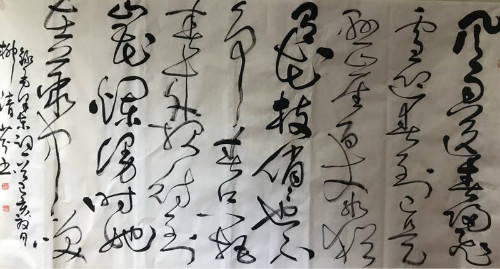 风雨送春归飞
雪迎春到已是
悬崖百丈冰犹
有花枝俏俏也不
争春只把
春来报待到
山花烂漫时她
在丛中笑
录毛泽东词 己亥 月
柳清 书